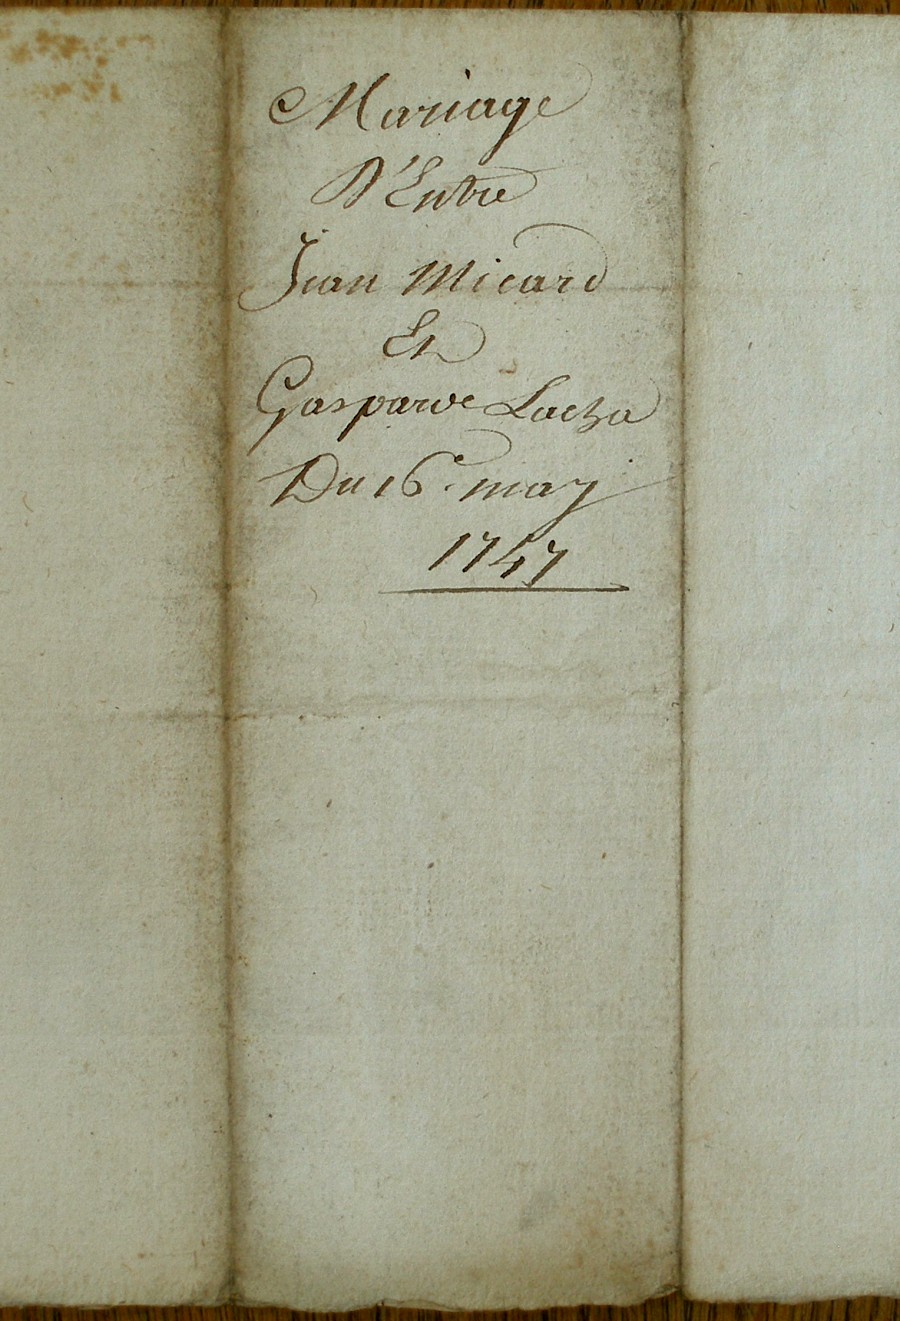 Mariage
D'Entre
Jean Micard
Et
Gasparde Lacha
Du 16e may
1747